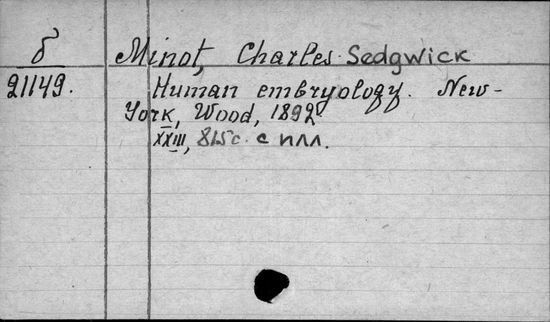 б
21149.
Minot, Charles Sedgwick
Human embryology. New-
York, Wood, 1892
XXIII, 815 с. с илл.